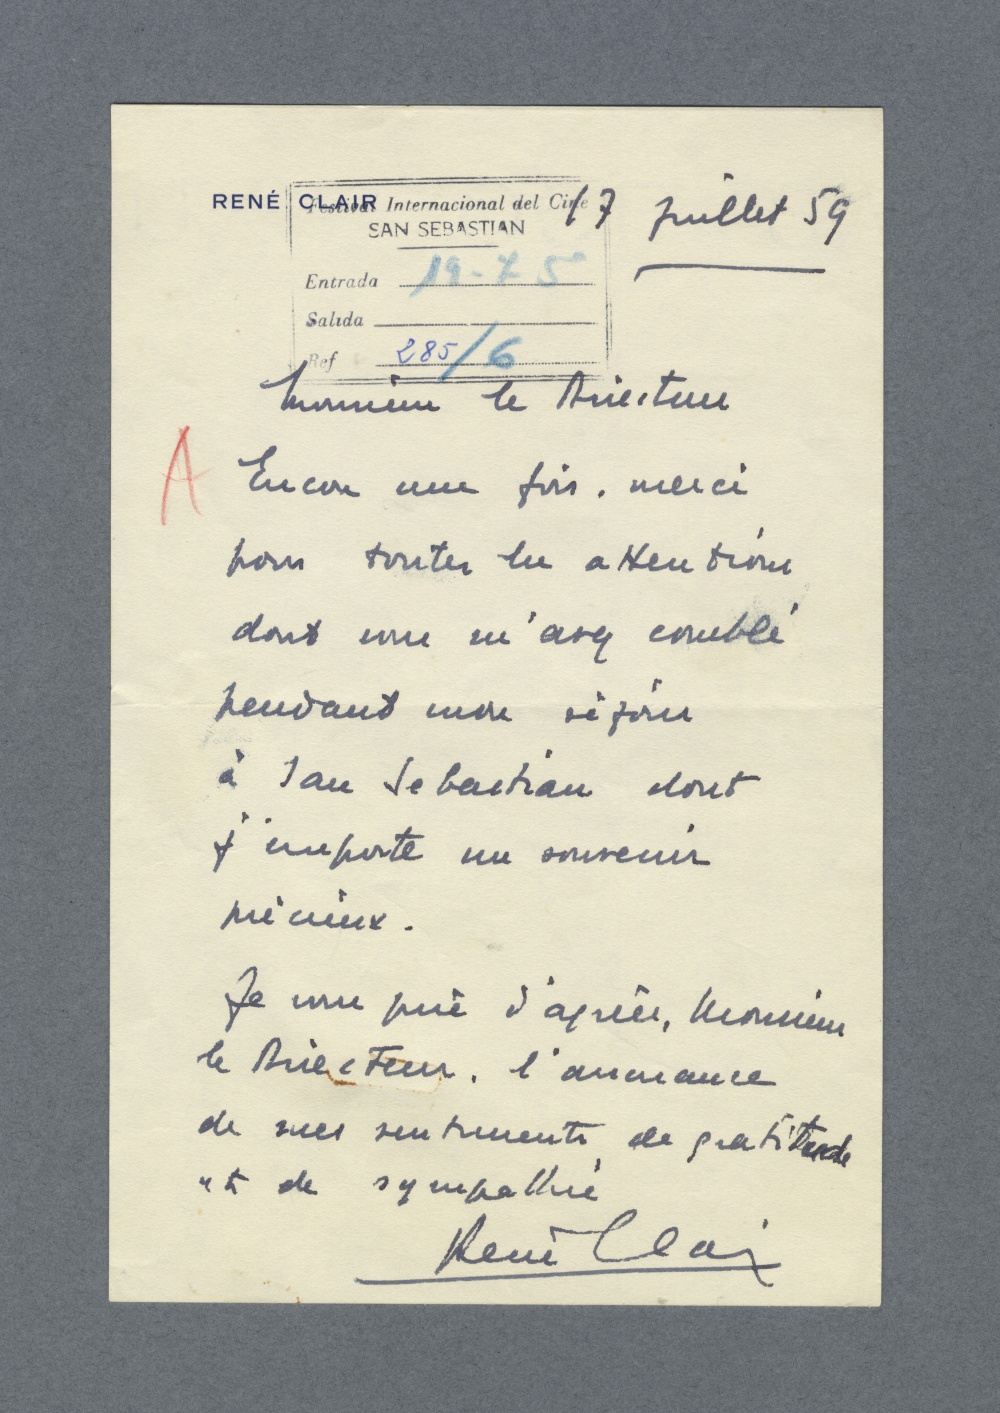 RENÉ CLAIR
Festival Internacional del Cine
SAN SEBASTIAN
Entrada 19-7 5
Salida
Ref 285/6
17 juillet 59
Monsieur le Directeur
A
Encore une fois, merci
pour toutes les attentions
dont vous m'avez comblé
pendant mon séjour
à San Sebastian dont
j'emporte un souvenir
précieux.
Je vous prie d'agréer, Monsieur
le Directeur, l'assurance
de mes sentiments de gratitude
et de sympathie
René Clair